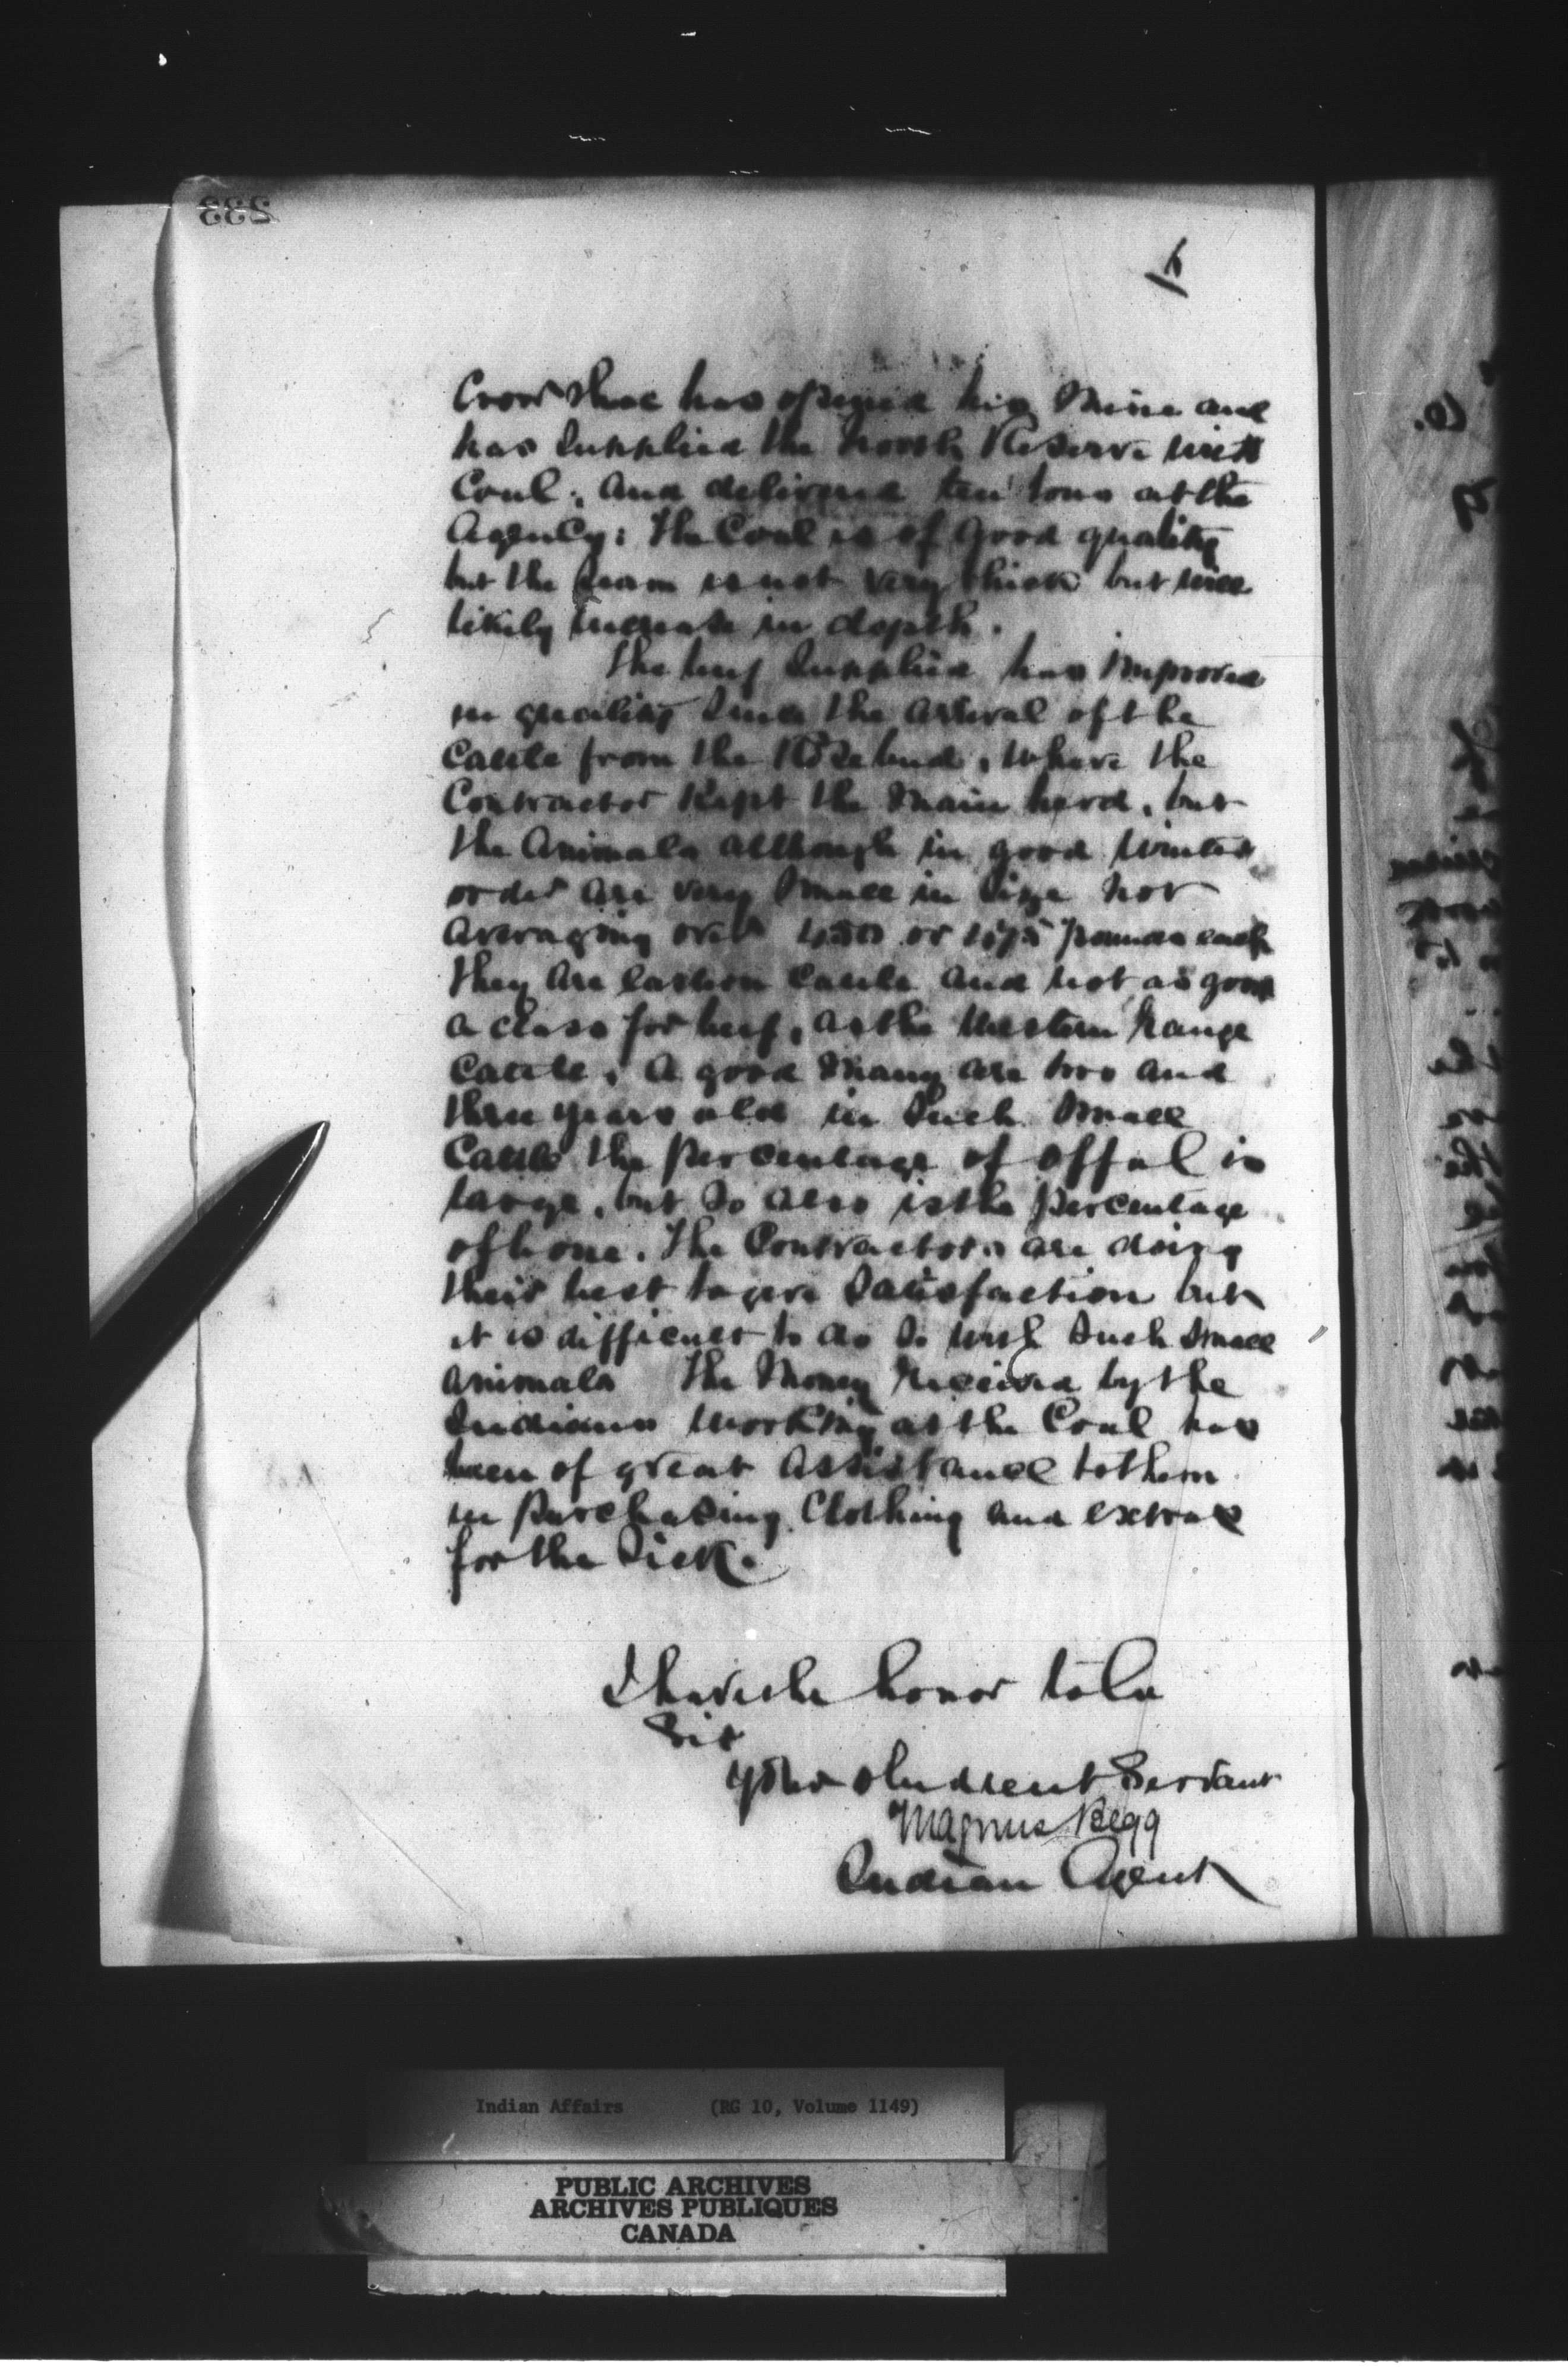 233
6
Crow Shoe has opened his Mine and
has Supplied the North Reserve with
Coal, and delivered ten tons at the
Agency; the Coal is of good quality
but the seam is not very thick but will
likely increase in depth.
The beef Supplied has improved
in quality since the arrival of the
Cattle from the Rosebud, where the
Contractor Kept the Main herd, but
the Animals although in good winter
order are very Small in Size not
averaging over 450 or 475 pounds each
they are eastern Cattle and not as good
a class for beef, as the Western Range
Cattle, A good Many are two and
three years old in Such Small
Cattle the percentage of offal is
large, but So also is the percentage
of bone. The Contractors are doing
their best to give Satisfaction but
it is difficult to do So with Such Small
animals The Money Received by the
Indians Working at the Coal has
been of great Assistance to them
in Purchasing Clothing and extras
for the Sick.
I have the honor to be
Sir
Your obedient Servant
Magnus Begg
Indian Agent
Indian Affairs (RG 10, Volume 1149)
PUBLIC ARCHIVES
ARCHIVES PUBLIQUES
CANADA